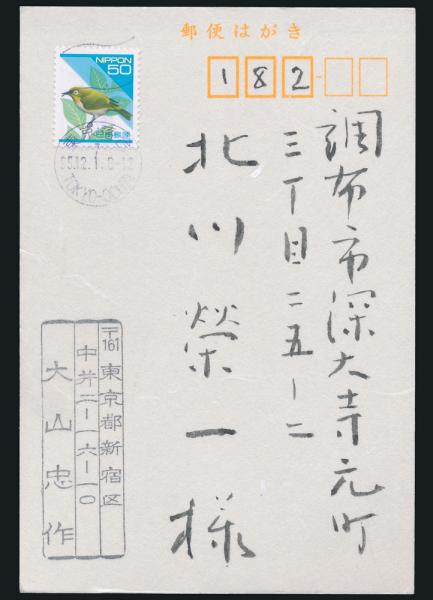 郵便はがき
NIPPON
50
日本郵便
182
調布市深大寺元町
三丁目二五ー二
北川榮一様
〒161 東京都新宿区
中井二ー一六ー一〇
大山忠作